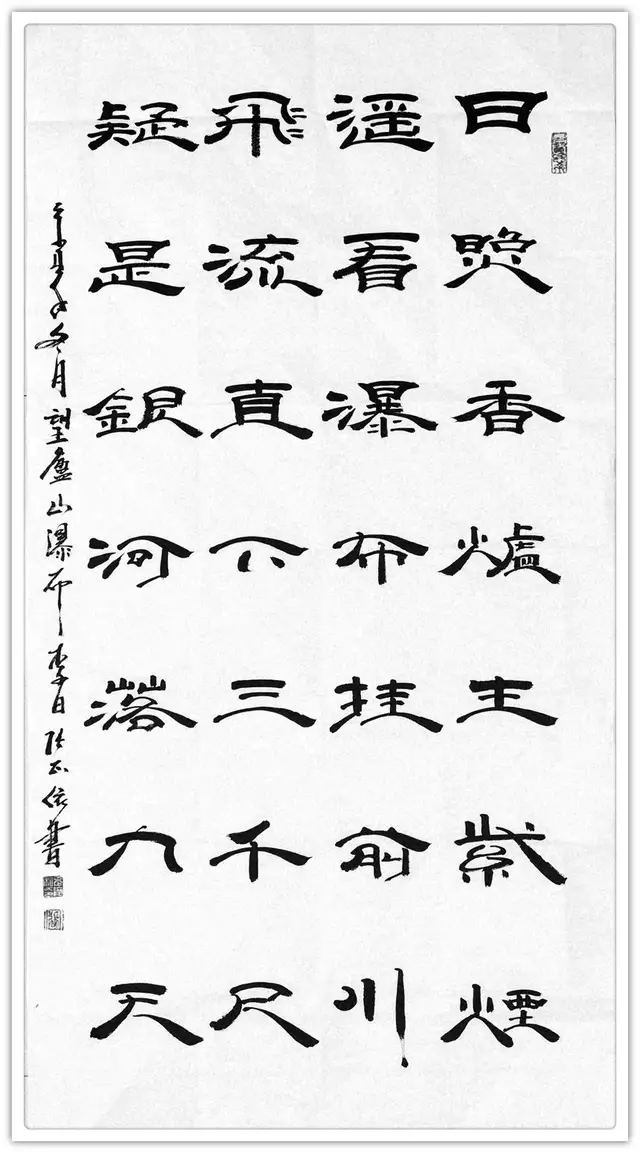 日照香爐生紫煙
遥看瀑布挂前川
飛流直下三千尺
疑是銀河落九天
辛年冬月望廬山瀑布李白張正書